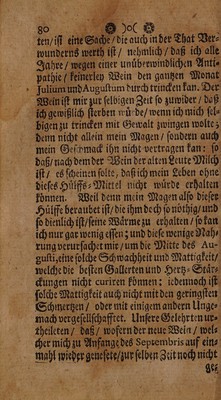 80 )o(
ten/ ist eine Sache/ die auch in der That Ver-
wunderns werth ist/ nehmlich/ daß ich alle
Jahre/ wegen einer unüberwindlichen Anti-
pathie/ keinerley Wein den gantzen Monat
Julium und Augustum durch trincken kan. Der
Wein ist mir zur selbigen Zeit so zuwider/ daß
ich gewißlich sterben würde/ wenn ich mich sel-
bigen zu trincken mit Gewalt zwingen wolte;
denn nicht allein mein Magen/ sondern auch
mein Geschmack ihn nicht vertragen kan: so
daß/ nach dem der Wein der alten Leute Milch
ist/ es scheinen solte, daß ich mein Leben ohne
dieses Hülffs-Mittel nicht würde erhalten
können. Weil denn mein Magen also dieser
Hülffe beraubet ist/ die ihm doch so nöthig/ und
so dienlich ist/ seine Wärme zu erhalten/ so kan
ich nur gar wenig essen; und diese wenige Nah-
rung verursachet mir/ um die Mitte des Au-
gusti, eine solche Schwachheit und Mattigkeit/
welche die besten Gallerten und Hertz-Stär-
ckungen nicht curiren können: iedennoch ist
solche Mattigkeit auch nicht mit den geringsten
Schmertzen/ oder mit einigem andern Unge-
mach vergesellschafftet. Unsere Gelehrten ur-
theileten/ daß/ wofern der neue Wein/ wel-
cher mich zu Anfange des Septembris auf ein-
mahl wieder genesete/ zur selben Zeit noch nicht
ge-